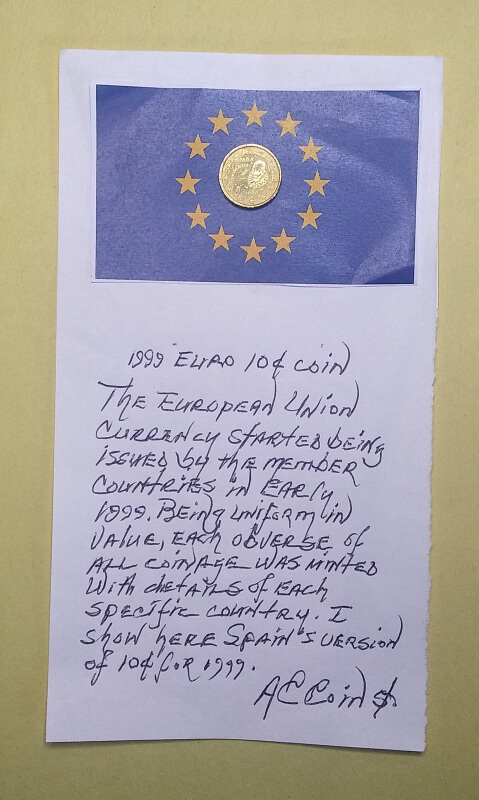 1999 EURO 10¢ COIN
THE EUROPEAN UNION
CURRENCY STARTED BEING
ISSUED by the MEMBER
COUNTRIES IN EARLY
1999. BEING UNIFORM IN
VALUE, EACH OBVERSE of
ALL COINAGE WAS MINTED
WITH DETAILS of EACH
SPECIFIC COUNTRY. I
SHOW HERE SPAIN'S VERSION
of 10¢ FOR 1999.
AC COIN $